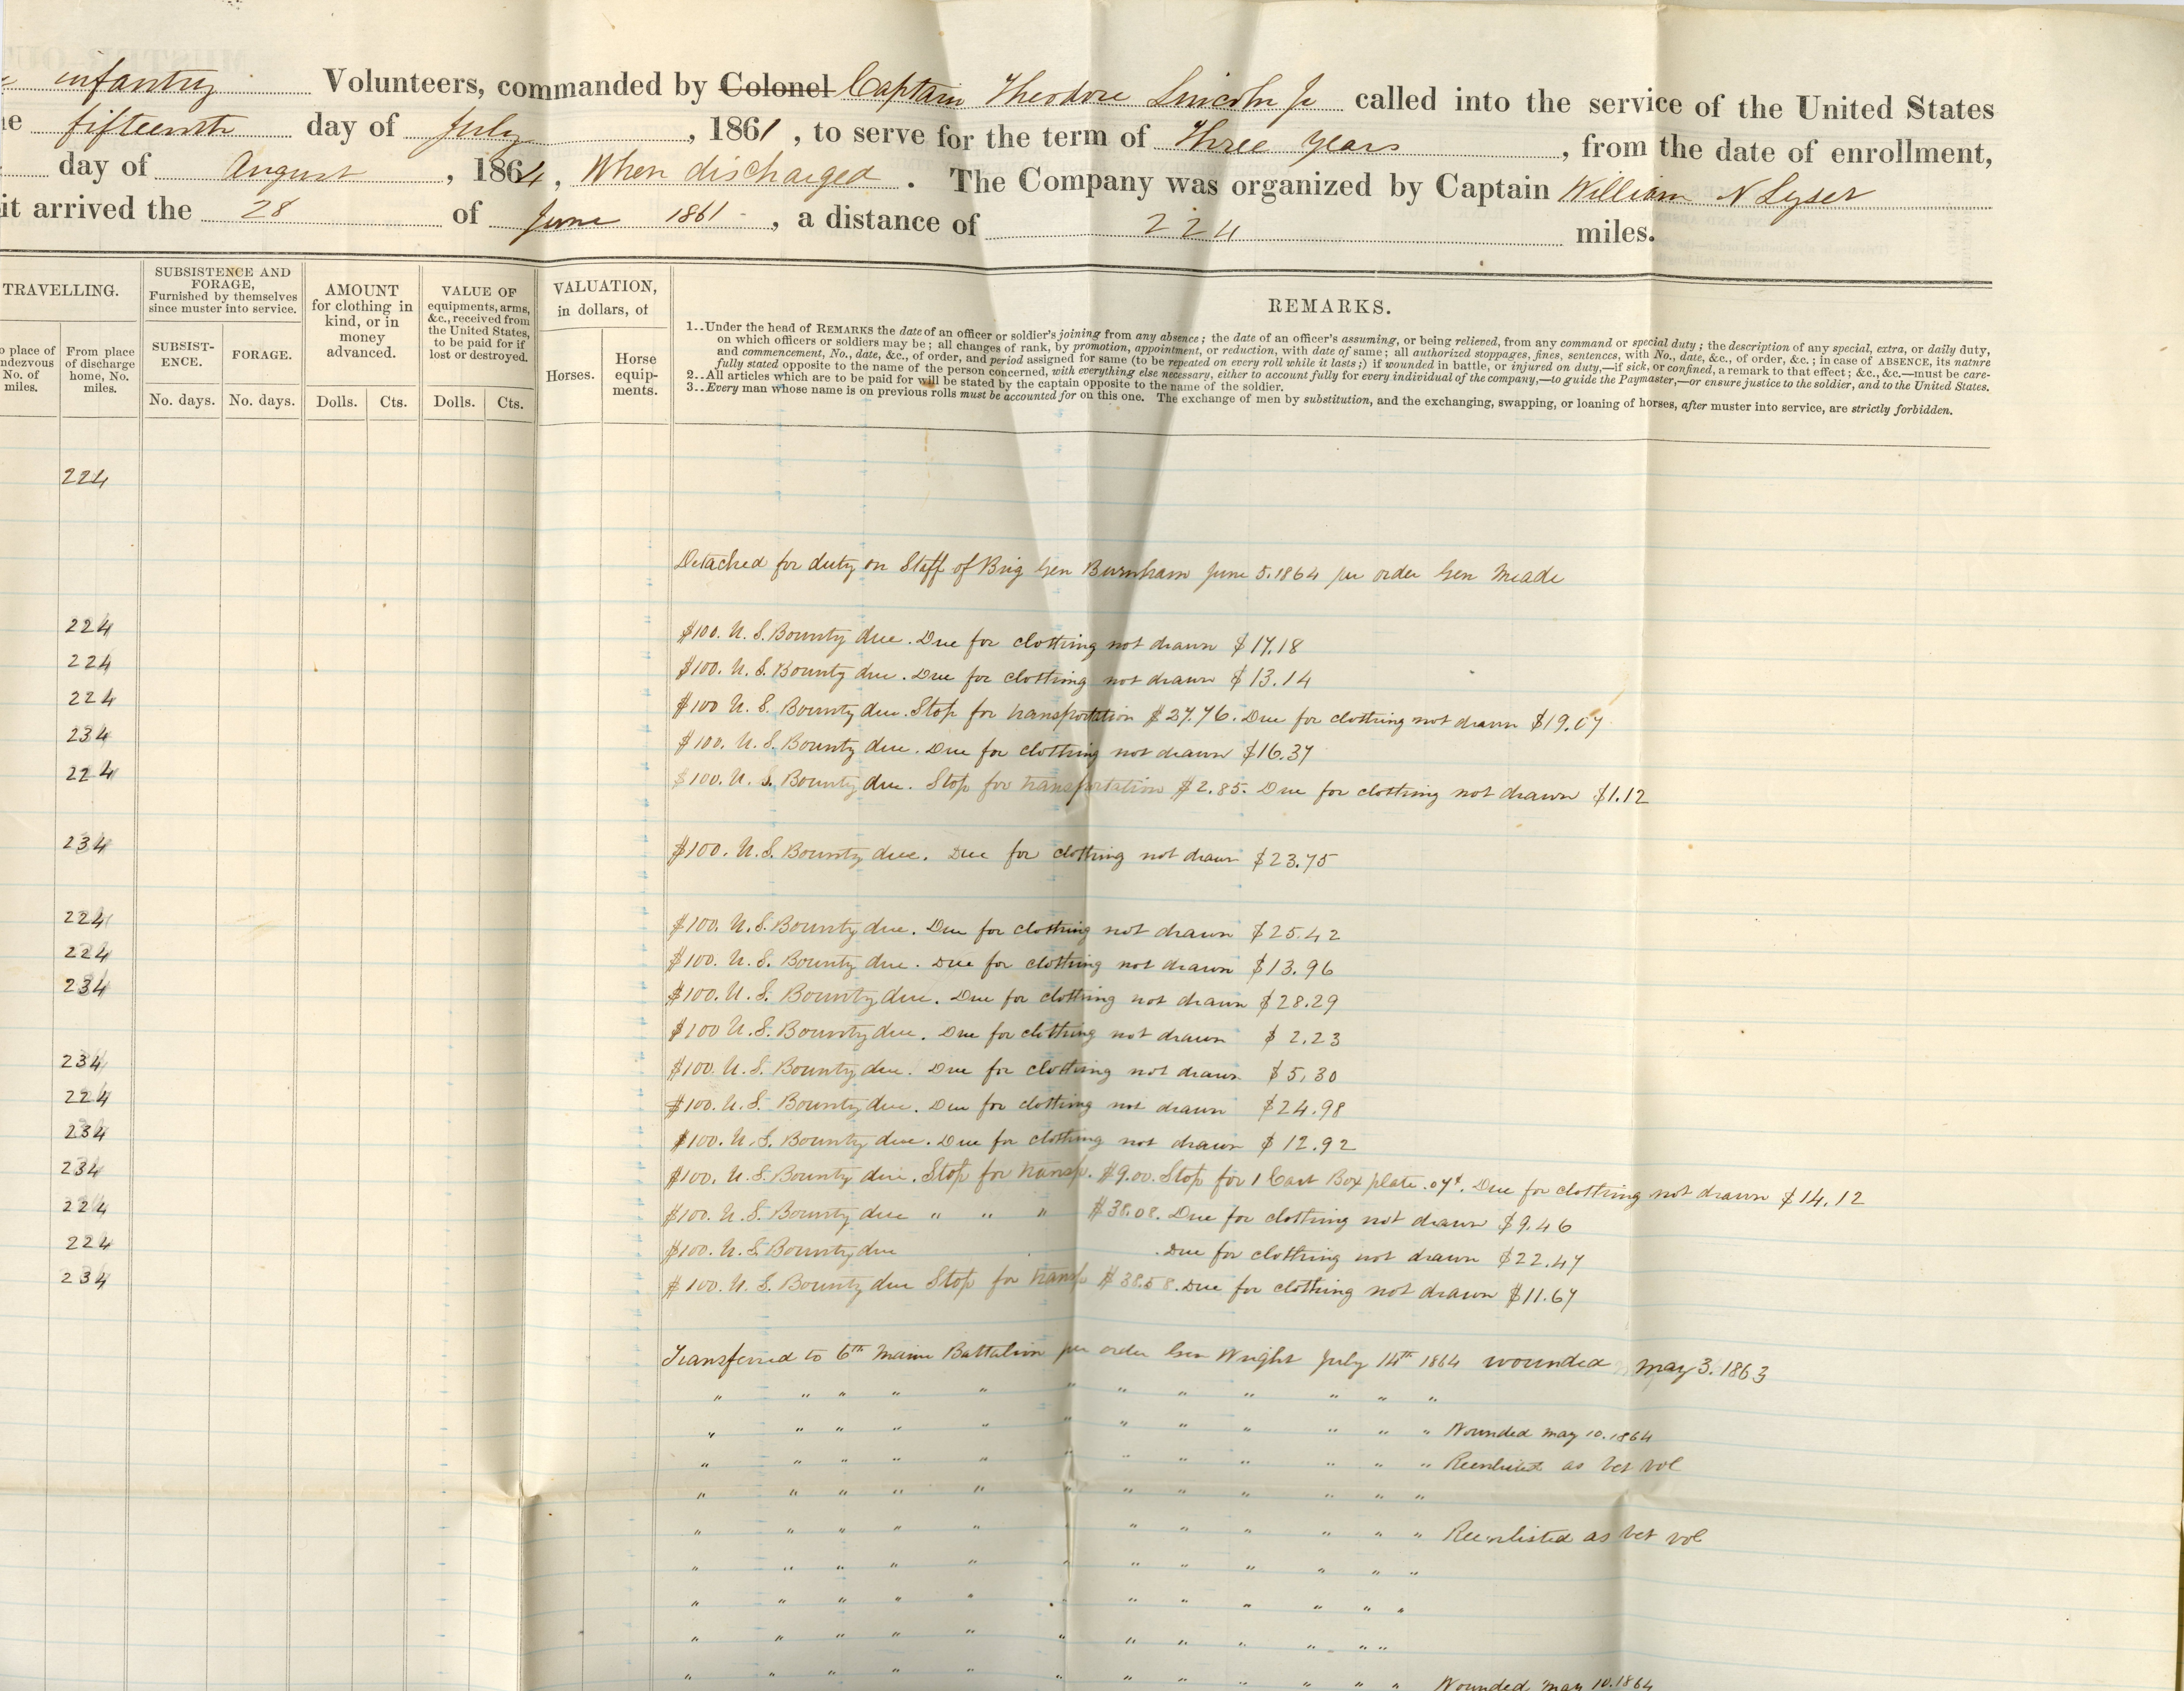 infantry Volunteers, commanded by Colonel Captain Theodore Lincoln Jr called into the service of the United States
fifteenth day of July, 1861, to serve for the term of Three years, from the date of enrollment,
day of August, 1864, When discharged. The Company was organized by Captain William N Lyser
it arrived the 28 of June 1861-, a distance of 224 miles.
TRAVELLING.
place of
No. of
miles.
From place
of discharge
home, No.
miles.
SUBSISTENCE AND
FORAGE,
Furnished by themselves
since muster into service.
SUBSIST-
ENCE.
FORAGE.
No. days. No. days.
AMOUNT
for clothing in
kind, or in
money
advanced.
Dolls. Cts.
VALUE OF
equipments, arms,
&c., received from
the United States,
to be paid for if
lost or destroyed.
Dolls. Cts.
VALUATION,
in dollars, of
Horses.
Horse
equip-
ments.
REMARKS.
1..Under the head of REMARKS the date of an officer or soldier's joining from any absence; the date of an officer's assuming, or being relieved, from any command or special duty; the description of any special, extra, or daily duty,
on which officers or soldiers may be; all changes of rank, by promotion, appointment, or reduction, with date of same; all authorized stoppages, fines, sentences, with No., date, &c., of order, &c.; in case of ABSENCE, its nature
and commencement, No., date, &c., of order, and period assigned for same (to be repeated on every roll while it lasts;) if wounded in battle, or injured on duty,—if sick, or confined, a remark to that effect; &c., &c.—must be care-
fully stated opposite to the name of the person concerned, with everything else necessary, either to account fully for every individual of the company,—to guide the Paymaster,—or ensure justice to the soldier, and to the United States.
2..All articles which are to be paid for will be stated by the captain opposite to the name of the soldier.
3..Every man whose name is on previous rolls must be accounted for on this one. The exchange of men by substitution, and the exchanging, swapping, or loaning of horses, after muster into service, are strictly forbidden.
224
Detached for duty on Staff of Brig Gen Burnham June 5. 1864 per order Gen Meade
224 $100. U. S. Bounty due. Due for clothing not drawn $17.18
224 $100. U. S. Bounty due. Due for clothing not drawn $13.14
224 $100 U. S. Bounty due. Stop for transportation $27.76. Due for clothing not drawn $19.07
234 $100. U. S. Bounty due. Due for clothing not drawn $16.37
224 $100. U. S. Bounty due. Stop for transportation $2.85. Due for clothing not drawn $1.12
234 $100. U. S. Bounty due. Due for clothing not drawn $23.75
224 $100. U. S. Bounty due. Due for clothing not drawn $25.42
224 $100. U. S. Bounty due. Due for clothing not drawn $13.96
234 $100. U. S. Bounty due. Due for clothing not drawn $28.29
$100 U. S. Bounty due. Due for clothing not drawn $2.23
234 $100. U. S. Bounty due. Due for clothing not drawn $5.30
224 $100. U. S. Bounty due. Due for clothing not drawn $24.98
234 $100. U. S. Bounty due. Due for clothing not drawn $12.92
234 $100. U. S. Bounty due. Stop for transp. $9.00. Stop for 1 Cart Box plate .07¢. Due for clothing not drawn $14.12
224 $100. U. S. Bounty due " " " $38.08. Due for clothing not drawn $9.46
224 $100. U. S. Bounty due . Due for clothing not drawn $22.47
234 $100. U. S. Bounty due Stop for transp $38.58. Due for clothing not drawn $11.67
Transferred to 6th Maine Battalion per order Gen Wright July 14th 1864 wounded may 3. 1863
" " " " " " " " " " " "
" " " " " " " " " " " " Wounded may 10. 1864
" " " " " " " " " " " " Reenlisted as vet vol
" " " " " " " " " " " "
" " " " " " " " " " " Reenlisted as vet vol
" " " " " " " " " " " "
" " " " " " " " " " " "
" " " " " " " " " " " "
" " " " " " " " " " " " Wounded may 10. 1864